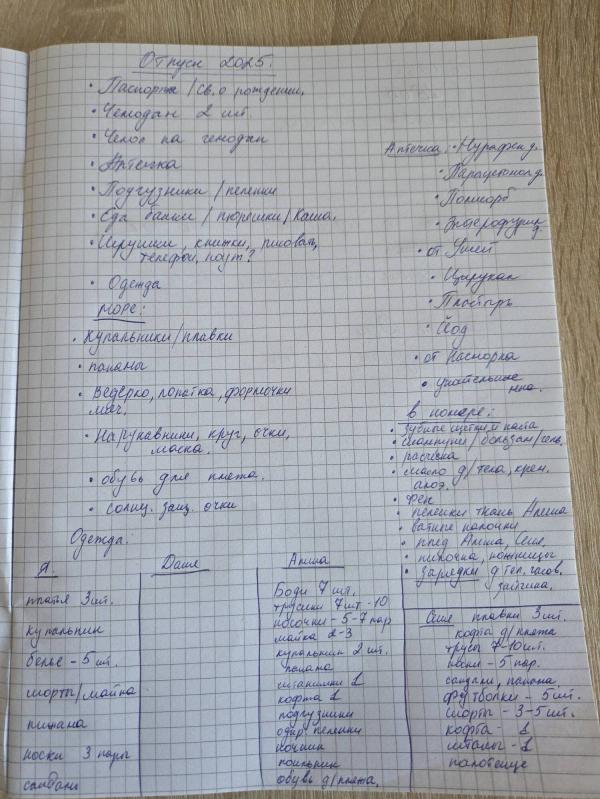 Отпуск 2025.
• Паспорта / Св. о рождении.
• Чемодан 2 шт.
• Чехол на чемодан
• Аптечка
• Подгузники / пеленки
• Еда банки / пюрешки / Каша.
• Игрушки, книжки, рисоват,
телефон, ноут?
• Одежда
Море:
• Купальники / плавки
• панамы
• Ведерко, лопатка, формочки
мяч.
• Нарукавники, круг, очки,
маска.
• обувь для пляжа.
• солнц. защ. очки
Аптечка: • Нурофен д.
• Парацетамол д.
• Полисорб
• Энтерофурил
д.
• от Ушей
• Цирукал
• Пластырь
• Йод
• от Насморка
• в номере:
• зубные щетки и паста
• шампуни / бальзам / гель.
• расческа
• масло д/тела, крем.
алоэ.
• Фен
• пеленки ткань
• ватные палочки
• плед
• пилочка, ножницы
• зарядки д тел, часов.
Одежда:
Я
платья 3 шт.
купальник
белье - 5 шт.
шорты / майка
пижама
носки 3 пары
сандали
Даше
Боди 7 шт.
трусики 7 шт - 10
носочки - 5-7 пар
майка 2-3
купальник 2 шт.
панама
штанишки 1
кофта 1
подгузники
пеленки
ночник
поильник
обувь д/пляжа.
плавки 3 шт.
кофта д/пляжа
трусы 7-10 шт.
носки - 5 пар.
сандали, панама
футболки - 5 шт.
шорты - 3-5 шт.
кофта - 1
штаны - 1
полотенце